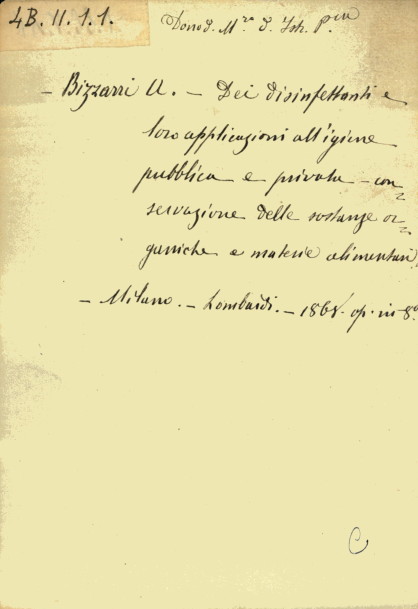 4B. II. 1. 1. Dono d. M.ro d. Istr. p.
— Bizzarri A. — Dei disinfettanti e
loro applicazioni all'igiene
pubblica e privata — con
servazione delle sostanze or
ganiche e materie alimentari
— Milano. — Lombardi. — 1868. op. in 8º
C